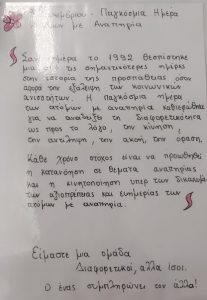 3 Δεκεμβρίου - Παγκόσμια Ημέρα
Ατόμων με Αναπηρία
Σαν σήμερα το 1992 θεσπίστηκε
μια από τις σημαντικότερες ημέρες
στην ιστορία της προσπάθειας, όσον
αφορά την εξάλειψη των κοινωνικών
ανισοτήτων. Η παγκόσμια ημέρα
των ατόμων με αναπηρία καθιερώθηκε
για να αναδείξει τη διαφορετικότητα
ως προς το λόγο, την κίνηση,
την αντίληψη, την ακοή, την όραση.
Κάθε χρόνο στόχος είναι να προωθηθεί
η κατανόηση σε θέματα αναπηρίας
και η κινητοποίηση υπέρ των δικαιωμά-
των αξιοπρέπειας και ευημερίας των
ατόμων με αναπηρία.
Είμαστε μια ομάδα
Διαφορετικοί, αλλά ίσοι.
Ο ένας συμπληρώνει τον άλλο!